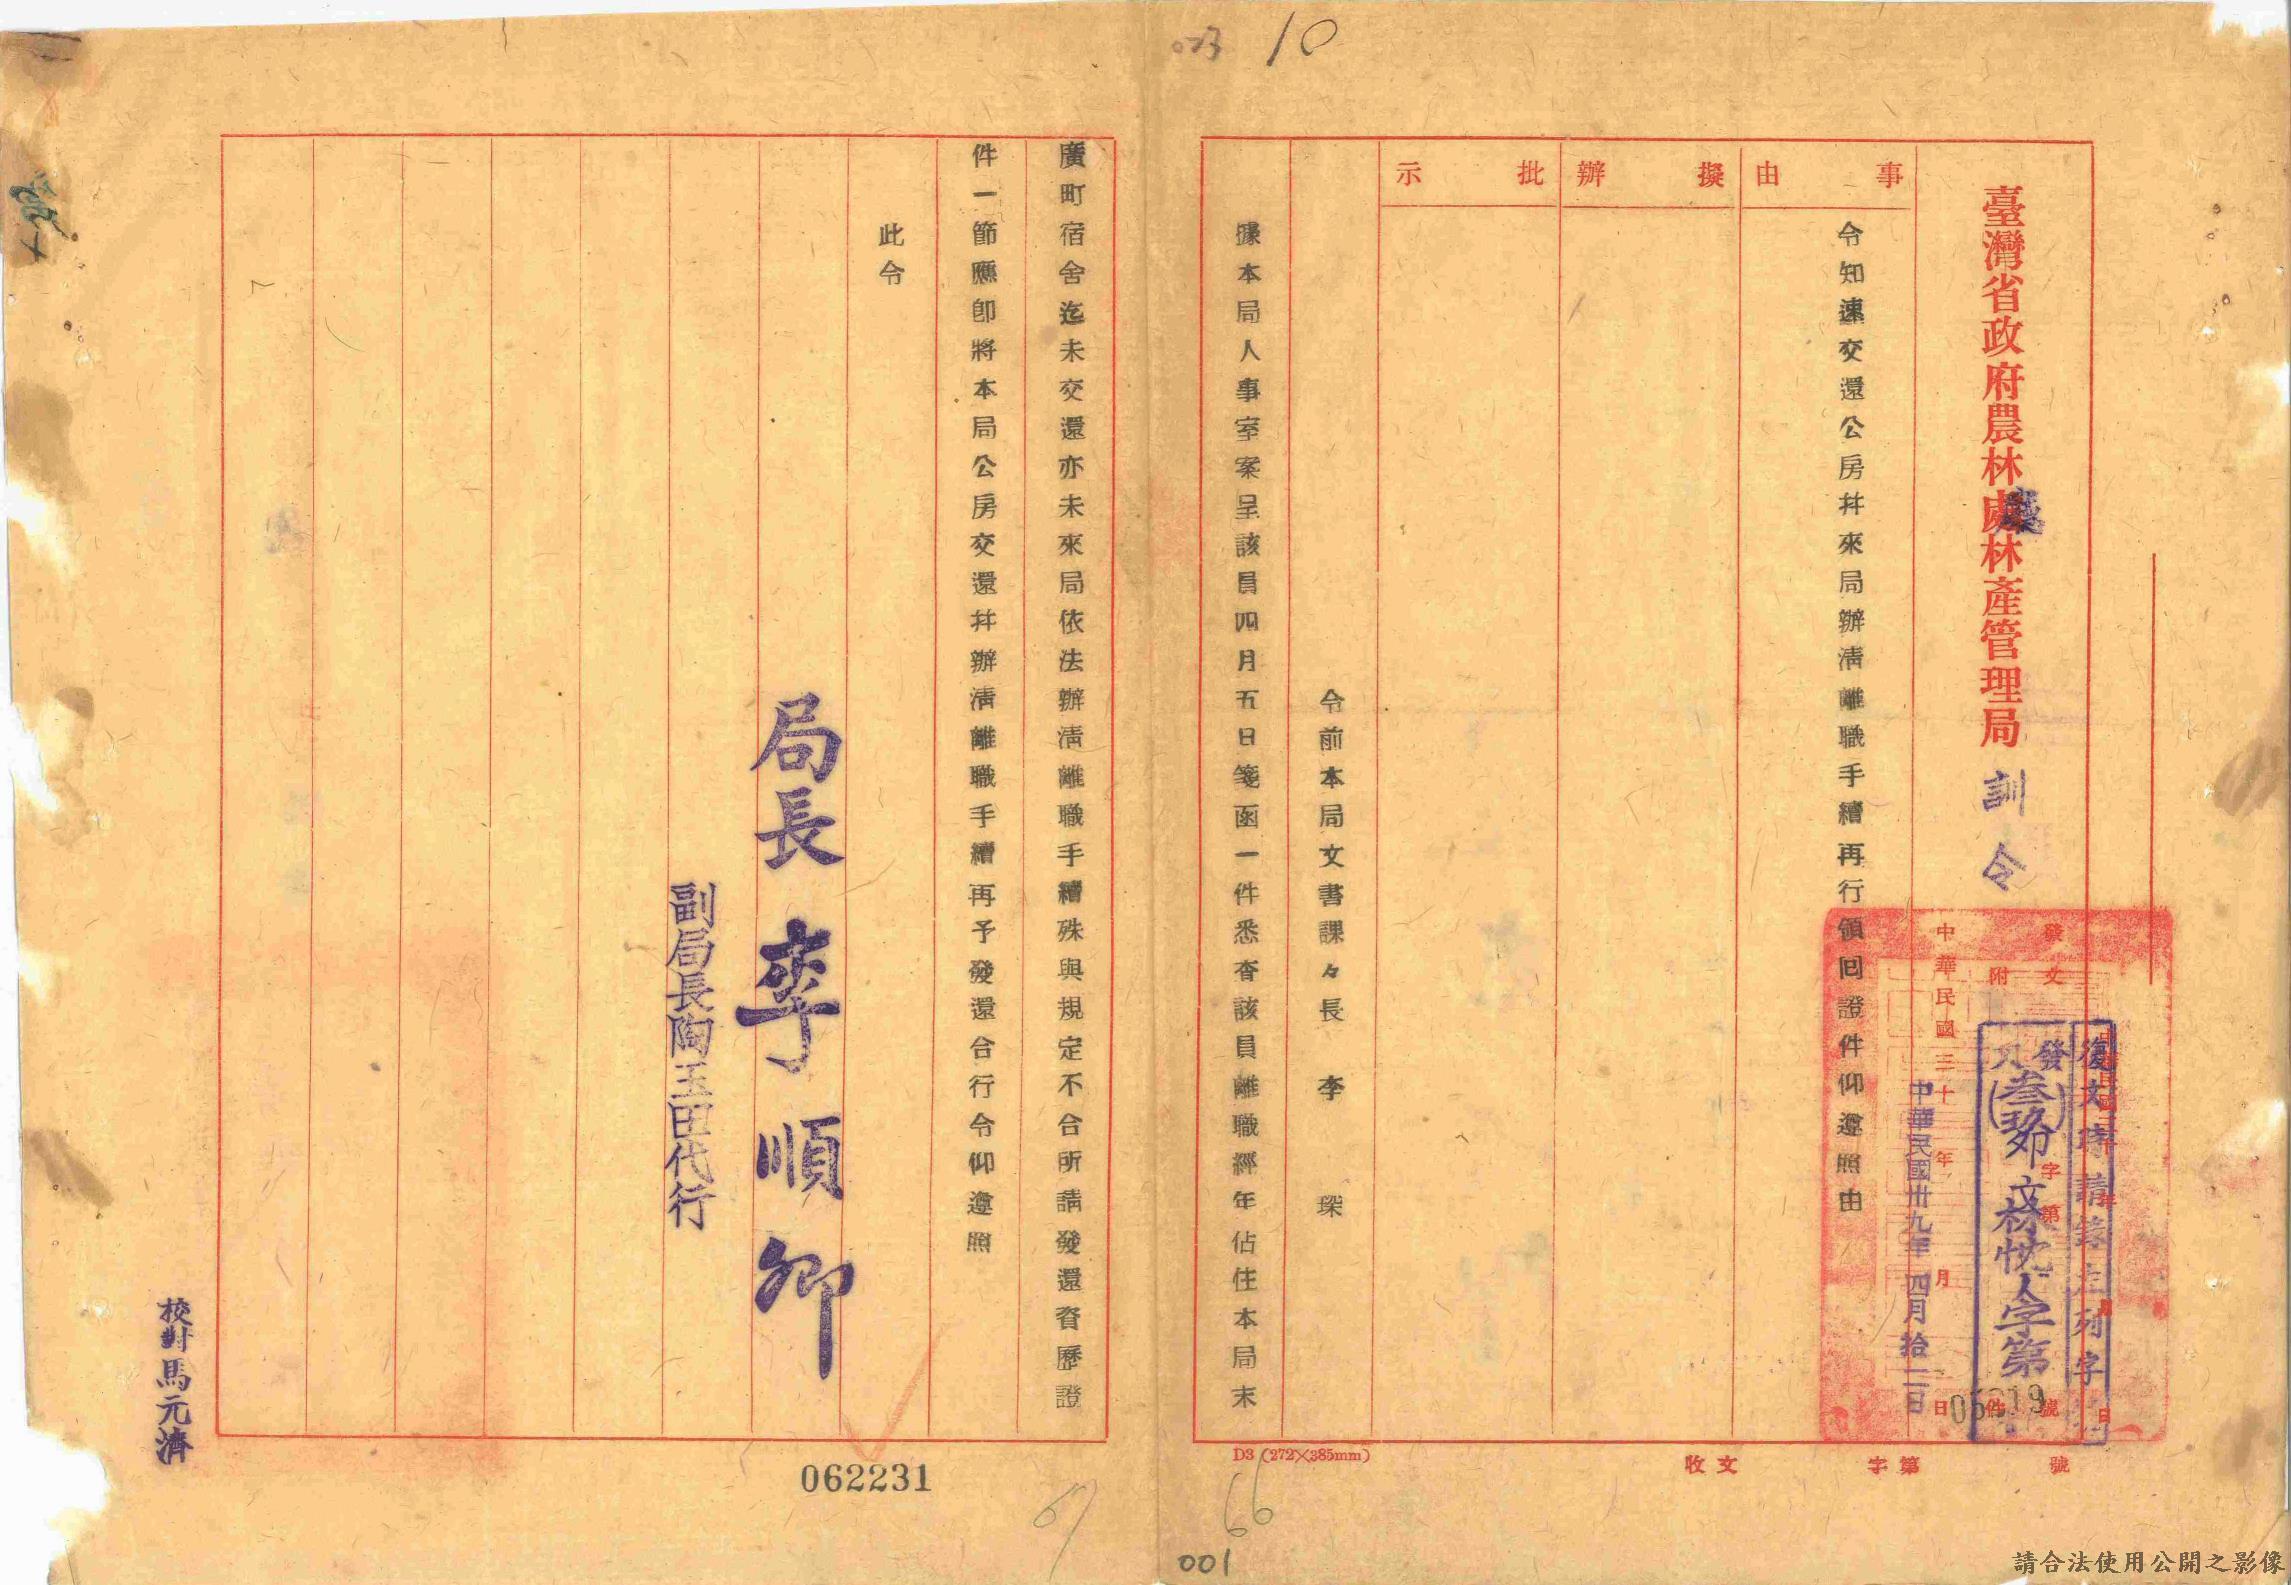 臺灣省政府農林廳林產管理局 訓令
事由
擬辦
批示
令知速交還公房幷來局辦清離職手續再行領回證件仰遵照由
中華民國三十 年 月 日
中華民國卅九年四月拾二日
發文
附件
字第 號
復文時請錄左列字
發文
(叁玖)卯
人字第
令前本局文書課々長 李 琛
據本局人事室案呈該員四月五日箋函一件悉查該員離職經年佔住本局末
廣町宿舍迄未交還亦未來局依法辦清離職手續殊與規定不合所請發還資歷證
件一節應卽將本局公房交還幷辦清離職手續再予發還合行令仰遵照
此令
局長 李順卿
副局長陶玉田代行
校對馬元濟
收文 字第 號
D3 (272×385mm)
062231
10
66
67
001
請合法使用公開之影像